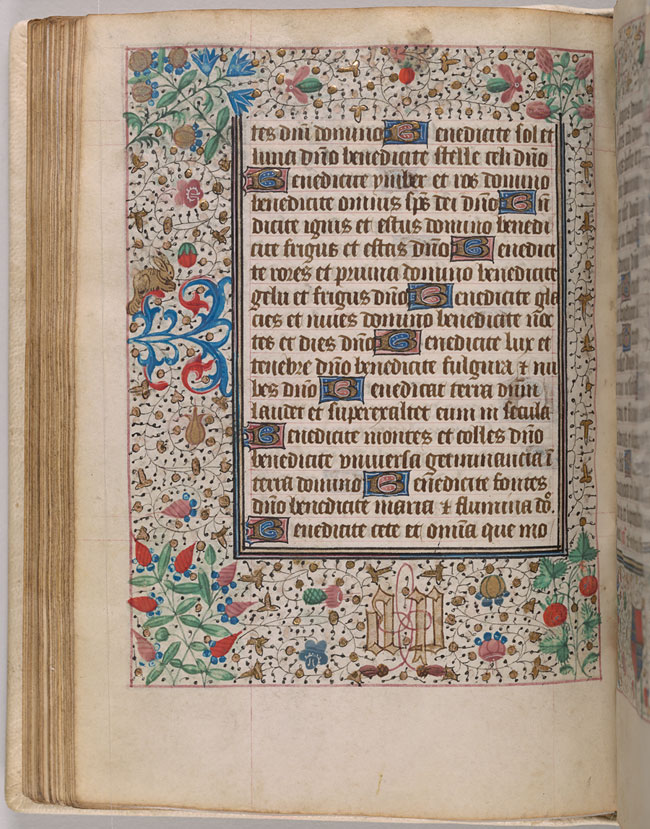 tes dñi domino Benedicite sol et
luna dño benedicite stelle celi dño
Benedicite ymber et ros domino
benedicite omnius sp̃s dei dño Bñ
dicite ignis et estus domino benedi
cite frigus et estas dño Benedici
te rores et pruina domino benedicite
gelu et frigus dño Benedicite gla
cies et niues domino benedicite noc
tes et dies dño Benedicite lux et
tenebre dño benedicite fulgura et nu
bes dño Benedicat terra dñm
laudet et superexaltet eum in secula
Benedicite montes et colles dño
benedicite vniuersa germinancia ĩ
terra domino Benedicite fontes
dño benedicite maria et flumina dõ.
Benedicite cete et omĩa que mo